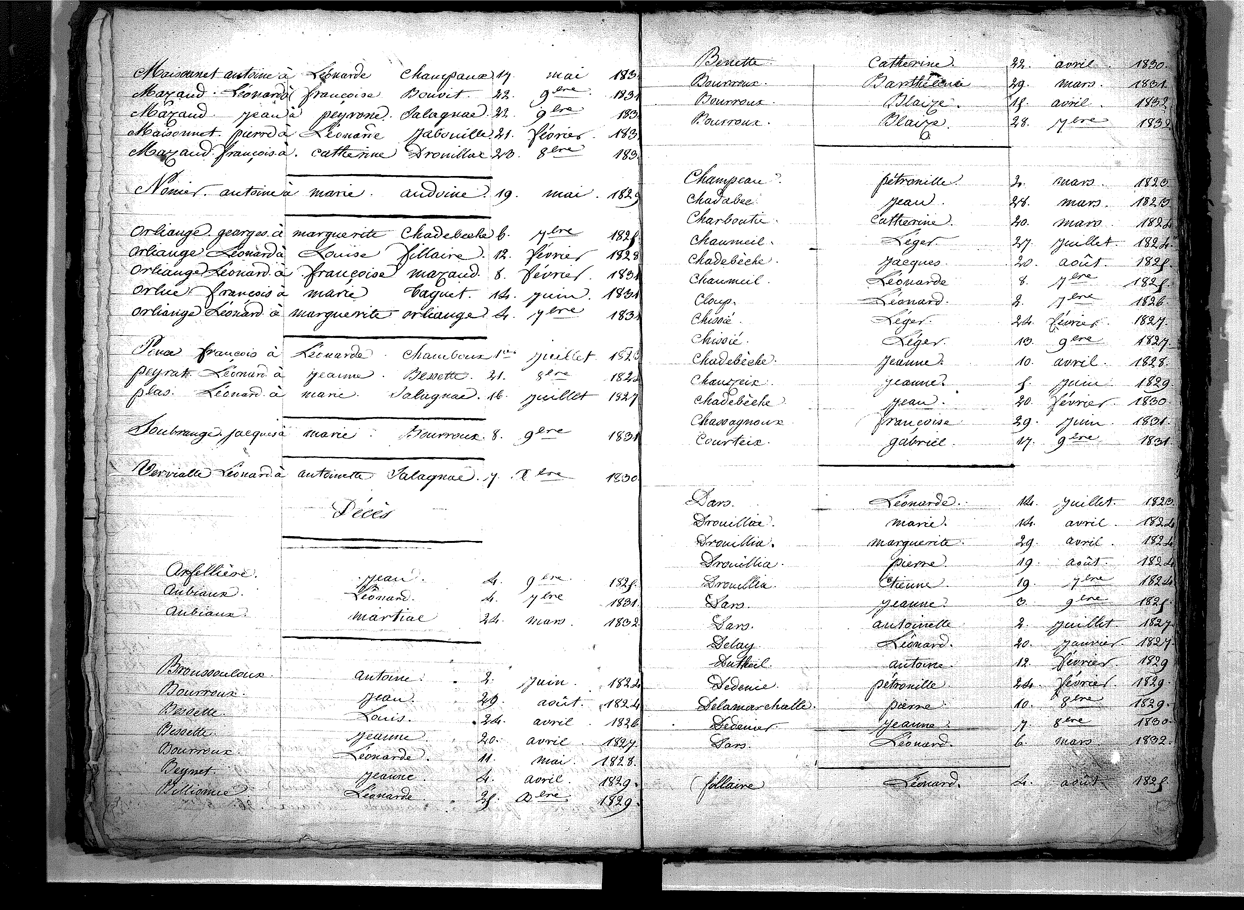 Maisonnet antoine à Léonarde Champaux 17. mai 183
Mazaud Léonard à françoise Bouvit 22. 9bre 1831
Mazaud jean à peyrone Salagnac 22. 9bre 183
Maisonnet pierre à Léonarde Jabouille 21. février 183
Mazaud françois à catherine Drouillac 23. 8bre 183
Nonier antoine à marie audoine 19. mai. 1829
orliange georges à marguerite Chadebeche 6. 7bre 1825
orliange Léonard à Louise fillaire 12. février 1828
orliange Léonard à françoise mazaud 8. février 1831
orlue françois à marie taguet 14. juin. 1831
orliange Léonard à marguerite orliange 4. 7bre 1831
françois à Léonarde Chamboux 1er juillet 182
peyrat Léonard à jeanne Bessette 21. 8bre 1824
plas. Léonard à marie Salagnac 16. juillet 1827
Soubrange jacques à marie Bourroux 8. 9bre 1831
Vervialle Léonard à antoinette Salagnac 7. Xbre 1830
Décès
Arfellière. jean. 4. 9bre 1825
Aubiaux Léonard. 4. 7bre 1831
Aubiaux martial 24. mars. 1832
Broussouloux antoine. 2. juin. 1824
Bourroux. jean 29. août. 1824
Bessette. Louis. 24. avril 1826
Bessette jeanne 20. avril 1827.
Bourroux Léonarde 11. mai. 1828.
Beynet. jeanne 4. avril. 1829.
Billionie Léonarde 25. Xbre 1829.
Benette Catherine 22. avril. 1830.
Bourroux Barthélémi 29. mars. 1831
Bourroux Blaize. 15. avril. 1832
Bourroux. Blaize 28. 7bre 1832
Champeau. pétronille 2. mars. 1823
Chadabec jean 28. mars. 1823
Charboutu Catherine 20. mars 1824
Chaumeil. Léger 27. juillet 1824.
Chadebèche jacques 20. août. 1825
Chaumeil Léonarde 8. 7bre 1825
Cloup. Léonard. 2. 7bre 1826
Chissié. Léger. 24. février. 1827.
Chissié. Léger. 13. 9bre 1827.
Chadebèche jeanne 10. avril 1828.
Chauzeix jeanne. 5. juin 1829
Chadebèche jean. 20. février 1830
Chassagnoux françoise 29. juin. 1831.
Courteix gabriel 17. 9bre 1831
Dars. Léonarde. 14. juillet 1823
Drouillac marie. 14. avril. 1824
Drouillia. marguerite 29. avril. 1824
Drouillia pierre 19. août. 1824
Drouillia Etienne 19. 7bre 1824
Dars. jeanne 3. 9bre 1825
Dars. antoinette 2. juillet 1827.
Delay Léonard. 20. janvier 1827
Dutheil antoine 12. février 1829
Dédenie. pétronille 24. février 1829.
Delamarchalle. pierre 10. 8bre 1829.
Dédenier jeanne 7. 8bre 1830.
Dars. Léonard. 6. mars. 1832.
fillaire Léonard. 4. août. 1825